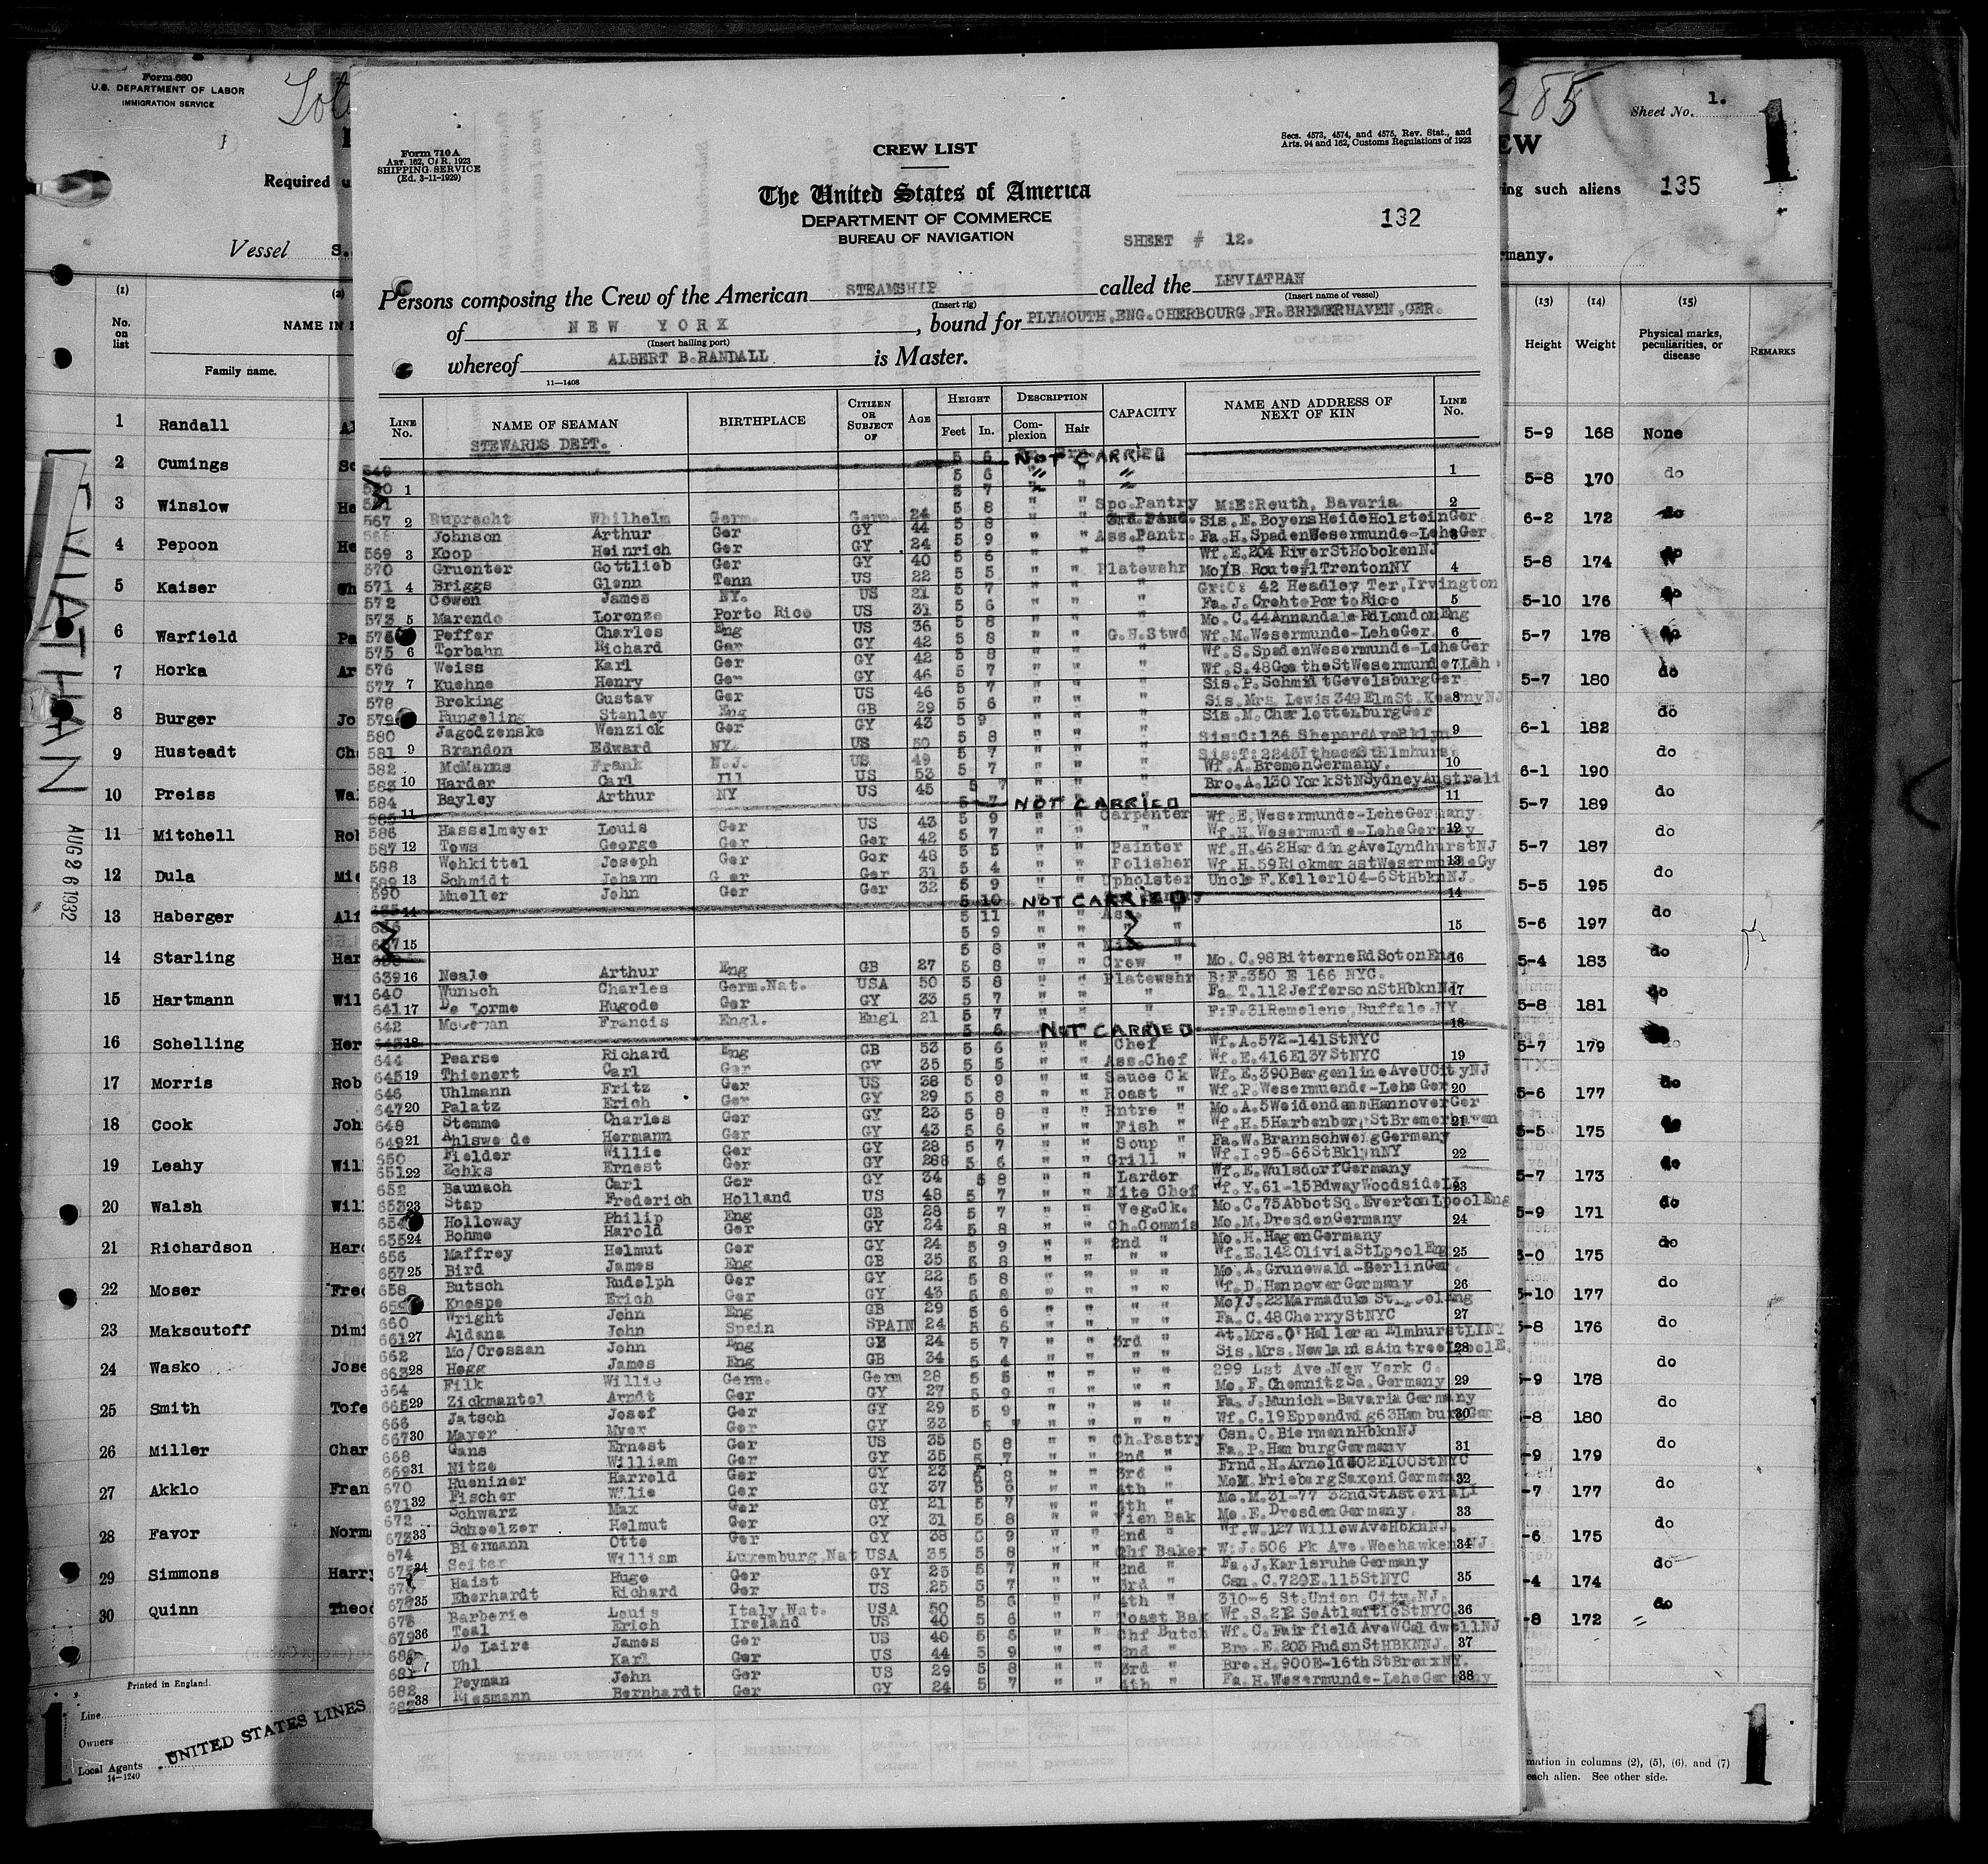 Form 680
U.S. DEPARTMENT OF LABOR
IMMIGRATION SERVICE
Required u
Vessel S.
(1)
No. on list
NAME IN
Family name.
1 Randall
2 Cumings Sc
3 Winslow He
4 Pepoon He
5 Kaiser
6 Warfield Pa
7 Horka Ar
8 Burger Jo
9 Husteadt Cha
10 Preiss Wal
11 Mitchell Rob
12 Dula Mic
13 Haberger Alf
14 Starling Har
15 Hartmann Wil
16 Schelling Her
17 Morris Rob
18 Cook Joh
19 Leahy Wil
20 Walsh Wil
21 Richardson Harc
22 Moser Fred
23 Makscutoff Dimi
24 Wasko Jose
25 Smith Tofe
26 Miller Char
27 Akklo Fran
28 Favor Norm
29 Simmons Harry
30 Quinn Theod
Printed in England.
Line
Owners
Local Agents
14-1240
UNITED STATES LINES
LEVIATHAN
AUG 26 1932
Form 710 A
ART. 162, C. R. 1923
SHIPPING SERVICE
(Ed. 3-11-1929)
CREW LIST
Secs. 4573, 4574, and 4575, Rev. Stat., and
Arts. 94 and 162, Customs Regulations of 1923
The United States of America
DEPARTMENT OF COMMERCE
BUREAU OF NAVIGATION
132
SHEET # 12.
Persons composing the Crew of the American STEAMSHIP called the LEVIATHAN
(Insert rig) (Insert name of vessel)
of NEW YORK, bound for PLYMOUTH,ENG.CHERBOURG.FR.BREMERHAVEN,GER.
(Insert hailing port)
whereof ALBERT B.RANDALL is Master.
11—1408
LINE No. NAME OF SEAMAN BIRTHPLACE CITIZEN OR SUBJECT OF AGE HEIGHT Feet In. DESCRIPTION Complexion Hair CAPACITY NAME AND ADDRESS OF NEXT OF KIN LINE No.
STEWARDS DEPT.
5 6 NOT CARRIED
1 5 6 " " 1
5 7 " "
567 2 Ruprecht Whilhelm Germ. Germ. 24 5 8 " " Spc.Pantry M:E:Reuth, Bavaria 2
Johnson Arthur Ger GY 44 5 8 " " Sis.E.BoyensHeideHolsteinGer
569 3 Koop Heinrich Ger GY 24 5 9 " " Ass.Pantr. Fa.H.SpadenWesermunde-LeheGer
570 Gruenter Gottlieb Ger GY 40 5 6 " " " Wf.E.204 RiverStHobokenNJ
571 4 Briggs Glenn Tenn US 22 5 5 " " Platewshr Mo/B Route#1TrentonNY 4
572 Cowen James NY. US 21 5 7 " " " Gr:C: 42 Headley Ter,Irvington
573 5 Marendo Lorenzo Porto Rico US 31 5 6 " " " 5
Peffer Charles Eng US 36 5 8 " " " Mo.C.44AnnandaleRdLondonEng
575 6 Torbahn Richard Ger GY 42 5 8 " " G.H.Stwd Wf.M.Wesermunde-LeheGer. 6
576 Weiss Karl Ger GY 42 5 8 " " " Wf.S.SpadenWesermunde-LeheGer
577 7 Kuehne Henry Ger GY 46 5 7 " " " 7
578 Broking Gustav Ger US 46 5 7 " " " Sis.P.SchmidtGevelsburgGer
579 Rungeling Stanley Eng GB 29 5 6 " " " Sis.Mrs.Lewis349ElmSt.KearnyNJ 8
580 Jagodzenske Wenzick Ger GY 43 5 9 " " " Sis.M.CharlottenburgGer
581 9 Brandon Edward NY. US 50 5 8 " " " Sis:C:136 ShepardAveBklyn 9
582 McManns Frank N.J. US 49 5 7 " " " Sis:T:2245IthacaStElmhurs
583 10 Harder Carl Ill US 53 5 7 " " " Wf.A.BremenGermany. 10
584 Bayley Arthur NY US 45 5 7 " " " Bro.A.130YorkStNSydneyAustrali
585 11 5 7 NOT CARRIED 11
586 Hasselmeyer Louis Ger US 43 5 9 " " Carpenter Wf.E.Wesermunde-LeheGermany
587 12 Tows George Ger Ger 42 5 7 " " " Wf.H.Wesermunde-LeheGermany 12
588 Wehkittel Joseph Ger Ger 48 5 5 " " Painter Wf.H.462HardingAveLyndhurstNJ
589 13 Schmidt Johann Ger Ger 31 5 4 " " Polisher 13
590 Mueller John Ger Ger 32 5 9 " " Upholster Uncle F.Keller104-6StHbknNJ.
14 5 10 NOT CARRIED 14
5 11 " " Ass. "
15 5 9 " " " " 15
5 8 " " Nite "
639 16 Neale Arthur Eng GB 27 5 8 " " Crew " Mo.C.98BitterneRdSotonEng 16
640 Wunsch Charles Germ.Nat. USA 50 5 8 " " Platewshr B:F.350 E 166 NYC.
641 17 De Lorme Hugode Ger GY 33 5 7 " " " Fa.T.112JeffersonStHbknNJ 17
642 Francis Engl. Engl 21 5 7 " " " F:F.31Remolene,Buffalo.NY.
18 5 6 NOT CARRIED 18
644 Pearse Richard Eng GB 53 5 6 " " Chef Wf.A.572-141StNYC
645 19 Thienert Carl Ger GY 35 5 5 " " Ass.Chef Wf.E.416E137StNYC 19
646 Uhlmann Fritz Ger US 38 5 9 " " Sauce Ck Wf.E.390BergenlineAveUCityNJ
647 20 Palatz Erich Ger GY 29 5 8 " " Roast " Wf.P.Wesermuende-LeheGer 20
648 Stemme Charles Ger GY 23 5 8 " " Entre " Mo.A.5WeidendammHannoverGer
649 21 Ahlswede Hermann Ger GY 43 5 6 " " Fish " 21
650 Fielder Willie Ger GY 28 5 7 " " Soup " Fa.W.BrannschweigGermany
651 22 Echks Ernest Ger GY 288 5 6 " " Grill " Wf.I.95-66StBklynNY 22
652 Baunach Carl Ger GY 34 5 8 " " Larder Wf.E.WulsdorfGermany
653 23 Stap Frederich Holland US 48 5 7 " " Nite Chef Wf.Y.61-15BdwayWoodsideLI 23
654 Holloway Philip Eng GB 28 5 7 " " Veg.Ck. Mo.C.75AbbotSq.EvertonLpoolEng
655 24 Bohme Harold Ger GY 24 5 8 " " Ch.Commis Mo.M.DresdenGermany 24
656 Maffrey Helmut Ger GY 24 5 9 " " 2nd " Mo.H.HagenGermany
657 25 Bird James Eng GB 35 5 8 " " " " Wf.E.142OliviaStLpoolEng 25
658 Butsch Rudolph Ger GY 22 5 8 " " " " Mo.A.Grunewald-BerlinGer.
659 Knospe Erich Ger GY 43 5 8 " " " " Wf.D.HannoverGermany 26
660 Wright John Eng GB 29 5 6 " " " "
661 27 Aldana John Spain SPAIN 24 5 6 " " " " Fa.C.48CherryStNYC 27
662 Mc/Crossan John Eng GB 24 5 7 " " 3rd " At.Mrs.O'HalleranElmhurstLINY
663 28 Hogg James Eng GB 34 5 4 " " " " 28
664 Filk Willie Germ. Germ 28 5 5 " " " " 299 Lst Ave.New York C.
665 29 Zickmantel Arndt Ger GY 27 5 9 " " " " Mo.F.ChemnitzSa.Germany 29
666 Jatsch Josef Ger GY 29 5 9 " " " " Fa.J.Munich-BavariaGermany
667 30 Mayer Myer Ger GY 33 5 7 " " " " 30
668 Gans Ernest Ger US 35 5 8 " " Ch.Pastry Csn.C.BiermannHbknNJ
669 31 Nitze William Ger GY 35 5 7 " " 2nd " Fa.P.HamburgGermany 31
670 Hueniner Harrold Ger GY 23 5 8 " " 3rd " Frnd.H.Arnold402E100StNYC
671 32 Fischer Wilie Ger GY 37 5 6 " " 4th " 32
672 Schwarz Max Ger GY 21 5 7 " " 4th " Mo.M.31-77 32ndStAstoriaLI
673 33 Schoelzer Helmut Ger GY 31 5 8 " " Vien Bak Mo.E.DresdenGermany. 33
674 Biermann Otto Ger GY 38 5 9 " " 2nd " Wf.W.127WillowAveHbknNJ.
34 Seiter William Luxemburg.Nat USA 35 5 8 " " Chf Baker W:J.506 Pk Ave.Weehawken NJ 34
Haist Hugo Ger GY 23 5 7 " " 2nd " Fa.J.KarlsruheGermany
35 Eberhardt Richard Ger US 25 5 7 " " 3rd " Csn.C.729E.115StNYC 35
678 Barberie Louis Italy,Nat. USA 50 5 6 " " 4th " 310-6 St.Union City.NJ.
679 36 Teal Erich Ireland US 40 5 6 " " Toast Bak Wf.S.212 SoAtlanticStNYC 36
De Laire James Ger US 40 5 6 " " Chf Butch Wf.C.FairfieldAveWCaldwellNJ
681 Uhl Karl Ger US 44 5 9 " " 2nd " Bro.E.203HudsnStHBKNNJ. 37
682 Peyman John Ger US 29 5 8 " " 3rd " Bro.H.900E-16thStBronxNY.
38 Riesmann Bernhardt Ger GY 24 5 7 " " 4th " Fa.H.Wesermunde-LeheGermany 38
285
Sheet No. 1.
1
EW
ing such aliens 135
many.
(13) Height (14) Weight (15) Physical marks, peculiarities, or disease REMARKS
5-9 168 None
5-8 170 do
6-2 172 do
5-8 174
5-10 176
5-7 178
5-7 180 do
6-1 182 do
6-1 190 do
5-7 189 do
5-7 187 do
5-5 195 do
5-6 197 do
5-4 183 do
5-8 181 do
5-7 179 do
5-6 177 do
5-5 175
5-7 173 do
5-9 171 do
-0 175 do
5-10 177 do
-8 176 do
-9 178 do
-8 180 do
-9 179 do
-7 177 do
-6 175 do
-4 174 do
-8 172 do
mation in columns (2), (5), (6), and (7)
each alien. See other side.
1